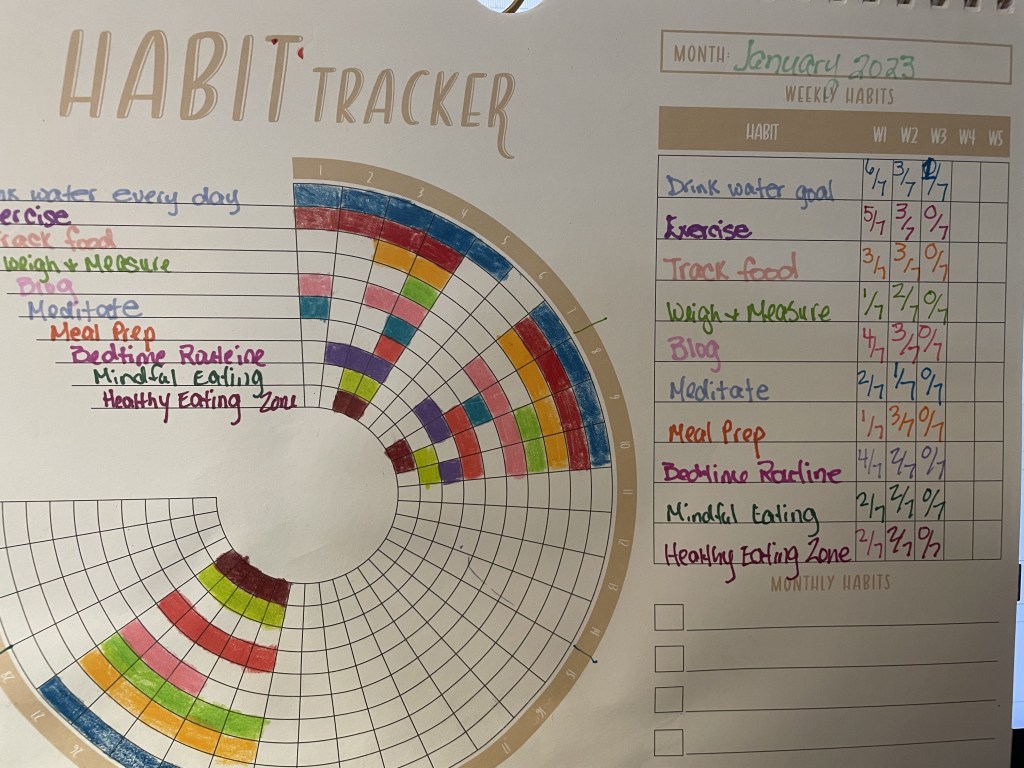 HABIT TRACKER
nk water every day
ercise
Track food
Weigh & Measure
Blog
Meditate
Meal Prep
Bedtime Routeine
Mindful Eating
Healthy Eating Zone
1 2 3 4 5 6 7 8 9 10 11 12 13 14 15 16
MONTH: January 2023
WEEKLY HABITS
HABIT W1 W2 W3 W4 W5
Drink water goal 6/7 3/7 /7
Exercise 5/7 3/7 0/7
Track food 3/7 3/7 0/7
Weigh & Measure 1/7 2/7 0/7
Blog 4/7 3/7 0/7
Meditate 2/7 1/7 0/7
Meal Prep 1/7 3/7 0/7
Bedtime Routine 4/7 2/7 0/7
Mindful Eating 2/7 2/7 0/7
Healthy Eating Zone 2/7 2/7 0/7
MONTHLY HABITS